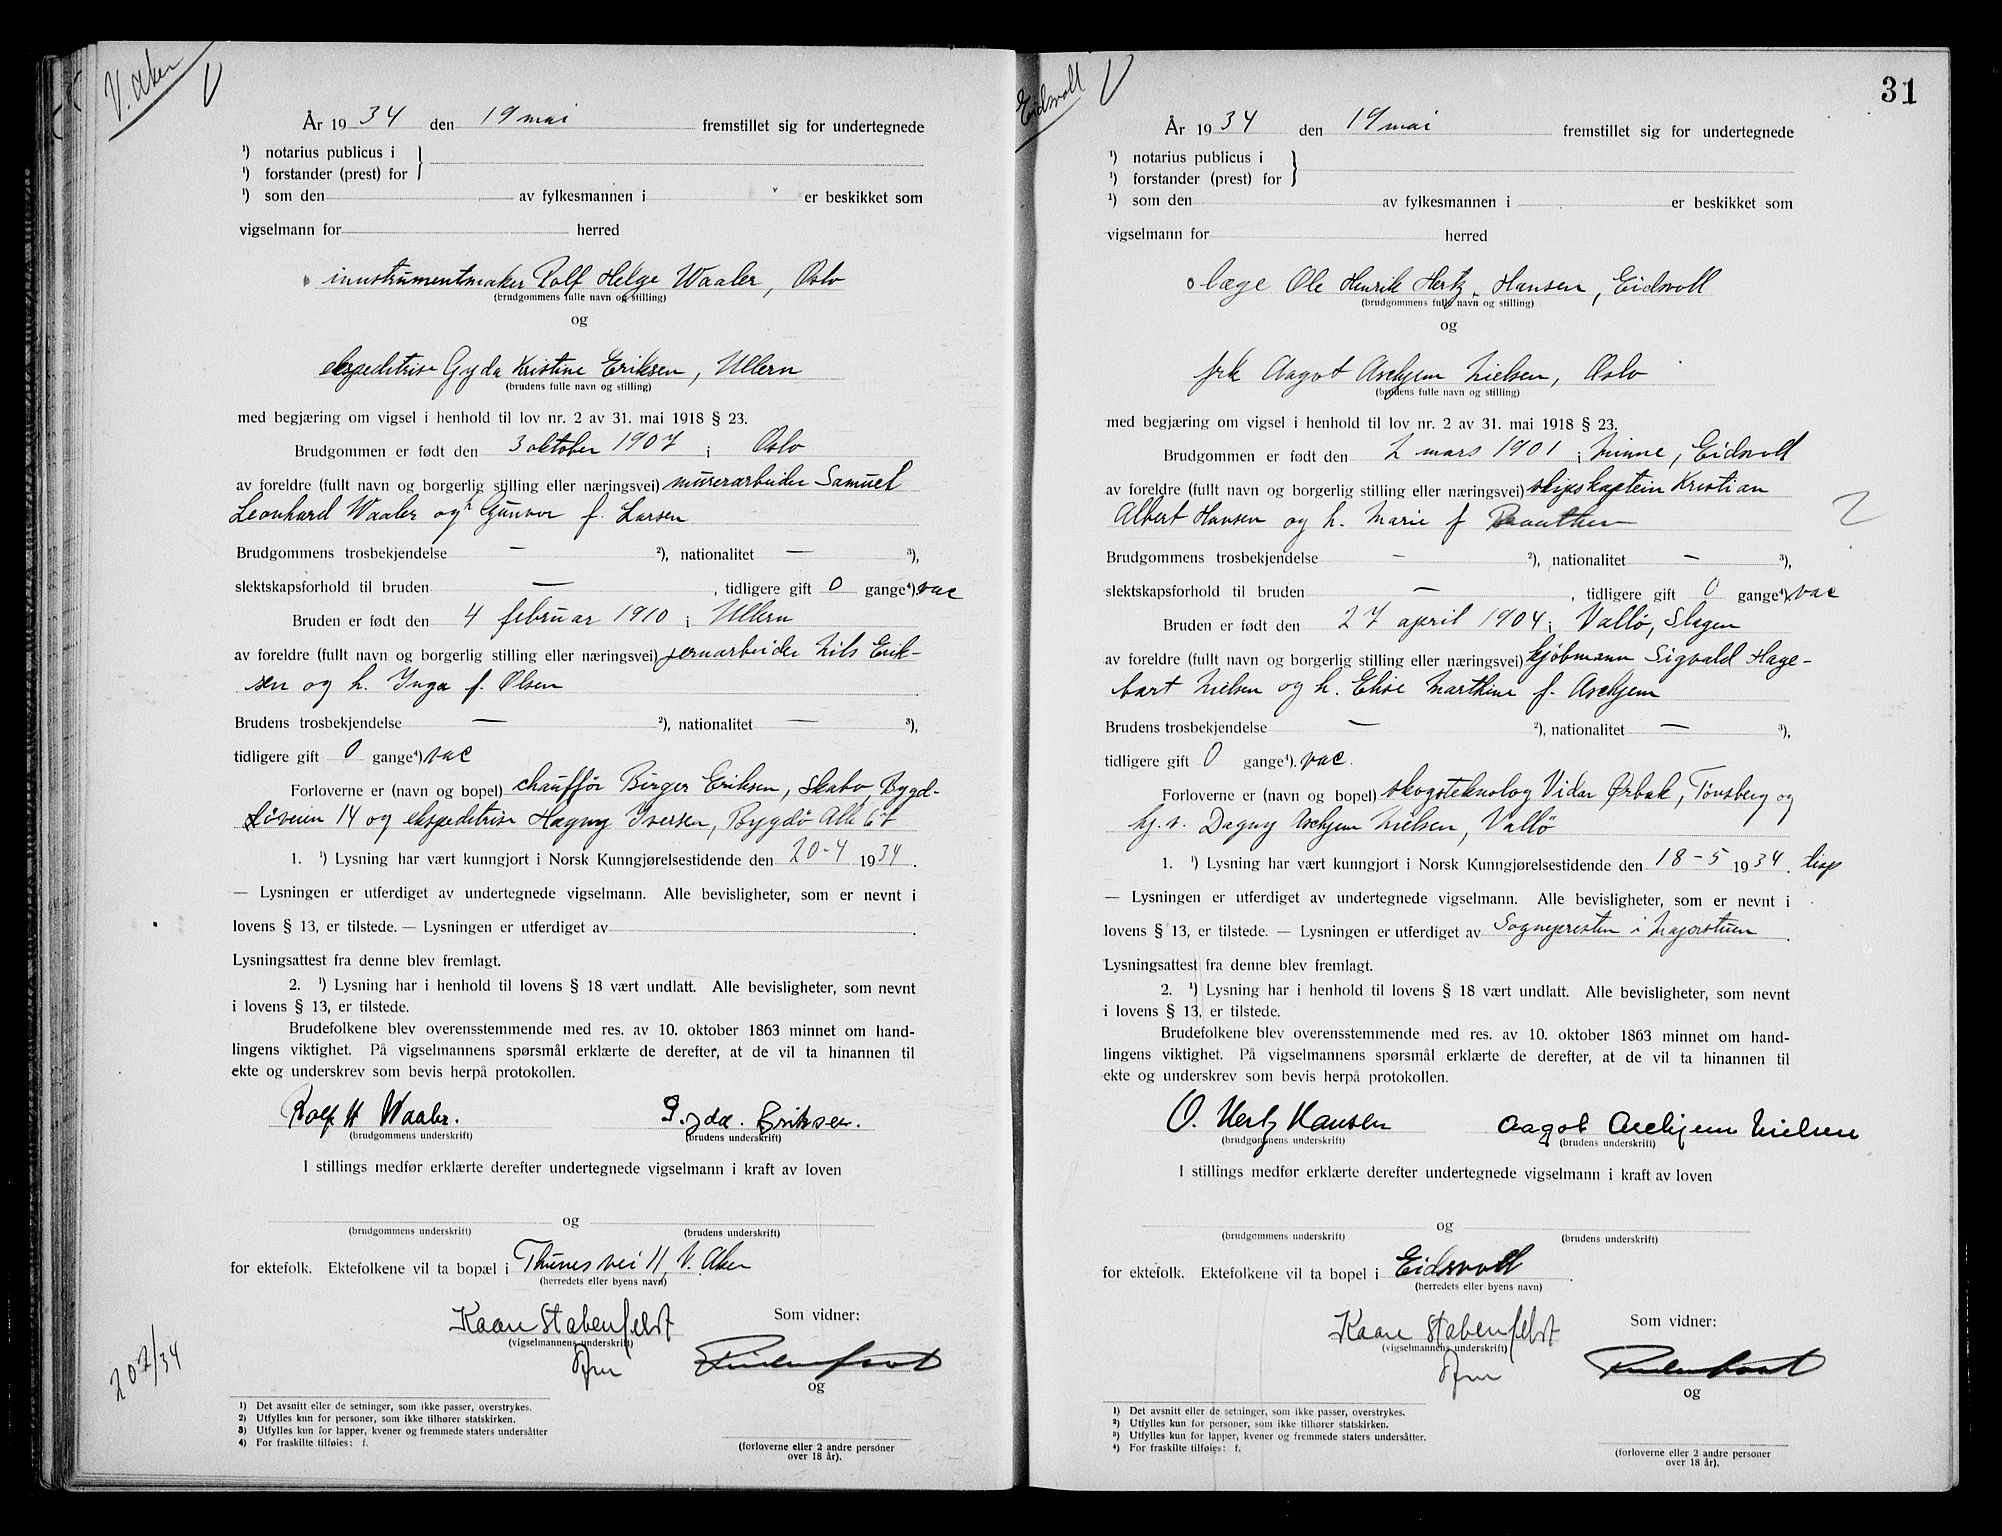 V. Aker
År 1934 den 19 mai fremstillet sig for undertegnede
¹) notarius publicus i
¹) forstander (prest) for
¹) som den av fylkesmannen i er beskikket som
vigselmann for herred
innstrumentmaker Rolf Helge Waaler, Oslo
(brudgommens fulle navn og stilling)
og
ekspeditrise Gyda Kristine Eriksen, Ullern
(brudens fulle navn og stilling)
med begjæring om vigsel i henhold til lov nr. 2 av 31. mai 1918 § 23.
Brudgommen er født den 3 oktober 1907 i Oslo
av foreldre (fullt navn og borgerlig stilling eller næringsvei) murerarbeider Samuel
Leonhard Waaler og h. Gunvor f. Larsen
Brudgommens trosbekjendelse — ²), nationalitet — ³),
slektskapsforhold til bruden — , tidligere gift 0 gange⁴) vac
Bruden er født den 4 februar 1910 i Ullern
av foreldre (fullt navn og borgerlig stilling eller næringsvei) jernarbeider Nils Erik-
sen og h. Inga f. Olsen
Brudens trosbekjendelse — ²), nationalitet — ³),
tidligere gift 0 gange⁴) vac
Forloverne er (navn og bopel) chauffør Birger Eriksen, Skabo, Bygd-
døveien 14 og ekspeditrise Hagny Iversen, Bygdø Alle 67
1. ¹) Lysning har vært kunngjort i Norsk Kunngjørelsestidende den 20-4 1934.
— Lysningen er utferdiget av undertegnede vigselmann. Alle bevisligheter, som er nevnt i
lovens § 13, er tilstede. — Lysningen er utferdiget av .
Lysningsattest fra denne blev fremlagt.
2. ¹) Lysning har i henhold til lovens § 18 vært undlatt. Alle bevisligheter, som nevnt
i lovens § 13, er tilstede.
Brudefolkene blev overensstemmende med res. av 10. oktober 1863 minnet om hand-
lingens viktighet. På vigselmannens spørsmål erklærte de derefter, at de vil ta hinannen til
ekte og underskrev som bevis herpå protokollen.
Rolf H Waaler. Gyda Eriksen.
(brudgommens underskrift) (brudens underskrift)
I stillings medfør erklærte derefter undertegnede vigselmann i kraft av loven
og
(brudgommens underskrift) (brudens underskrift)
for ektefolk. Ektefolkene vil ta bopæl i Thunes vei 11, V. Aker
(herredets eller byens navn)
Kaare Stabenfeldt Som vidner:
(vigselmannens underskrift)
og
207/34
1) Det avsnitt eller de setninger, som ikke passer, overstrykes.
2) Utfylles kun for personer, som ikke tilhører statskirken.
3) Utfylles kun for lapper, kvener og fremmede staters undersåtter
4) For fraskilte tilføies: f.
(forloverne eller 2 andre personer
over 18 år).
31
Eidsvoll
År 1934 den 19 mai fremstillet sig for undertegnede
¹) notarius publicus i
¹) forstander (prest) for
¹) som den av fylkesmannen i er beskikket som
vigselmann for herred
læge Ole Henrik Hertz-Hansen, Eidsvoll
(brudgommens fulle navn og stilling)
og
frk Aagot Aschjem Nielsen, Oslo
(brudens fulle navn og stilling)
med begjæring om vigsel i henhold til lov nr. 2 av 31. mai 1918 § 23.
Brudgommen er født den 2 mars 1901 i Minne, Eidsvoll
av foreldre (fullt navn og borgerlig stilling eller næringsvei) skipskaptein Kristian
Albert Hansen og h. Marie f
Brudgommens trosbekjendelse — ²), nationalitet — ³),
slektskapsforhold til bruden — , tidligere gift 0 gange⁴) vac
Bruden er født den 27 april 1904 i Vallø, Slagen
av foreldre (fullt navn og borgerlig stilling eller næringsvei) kjøbmann Sigvald Hage-
bart Nielsen og h. Elise Marthine f. Aschjem
Brudens trosbekjendelse — ²), nationalitet — ³),
tidligere gift 0 gange⁴). vac.
Forloverne er (navn og bopel) skogsteknolog Vidar Ørbak, Tønsberg og
hj. v. Dagny Aschjem Nielsen, Vallø
1. ¹) Lysning har vært kunngjort i Norsk Kunngjørelsestidende den 18-5 1934. lisp
— Lysningen er utferdiget av undertegnede vigselmann. Alle bevisligheter, som er nevnt i
lovens § 13, er tilstede. — Lysningen er utferdiget av Sognepresten i Majorstuen.
Lysningsattest fra denne blev fremlagt.
2. ¹) Lysning har i henhold til lovens § 18 vært undlatt. Alle bevisligheter, som nevnt
i lovens § 13, er tilstede.
Brudefolkene blev overensstemmende med res. av 10. oktober 1863 minnet om hand-
lingens viktighet. På vigselmannens spørsmål erklærte de derefter, at de vil ta hinannen til
ekte og underskrev som bevis herpå protokollen.
O. Hertz Hansen Aagot Aschjem Nielsen
(brudgommens underskrift) (brudens underskrift)
I stillings medfør erklærte derefter undertegnede vigselmann i kraft av loven
og
(brudgommens underskrift) (brudens underskrift)
for ektefolk. Ektefolkene vil ta bopel i Eidsvoll.
(herredets eller byens navn)
Kaare Stabenfeldt Som vidner:
(vigselmannens underskrift)
og
1) Det avsnitt eller de setninger, som ikke passer, overstrykes.
2) Utfylles kun for personer, som ikke tilhører statskirken.
3) Utfylles kun for lapper, kvener og fremmede staters undersåtter.
4) For fraskilte tilføies: f.
(forloverne eller 2 andre personer
over 18 år).